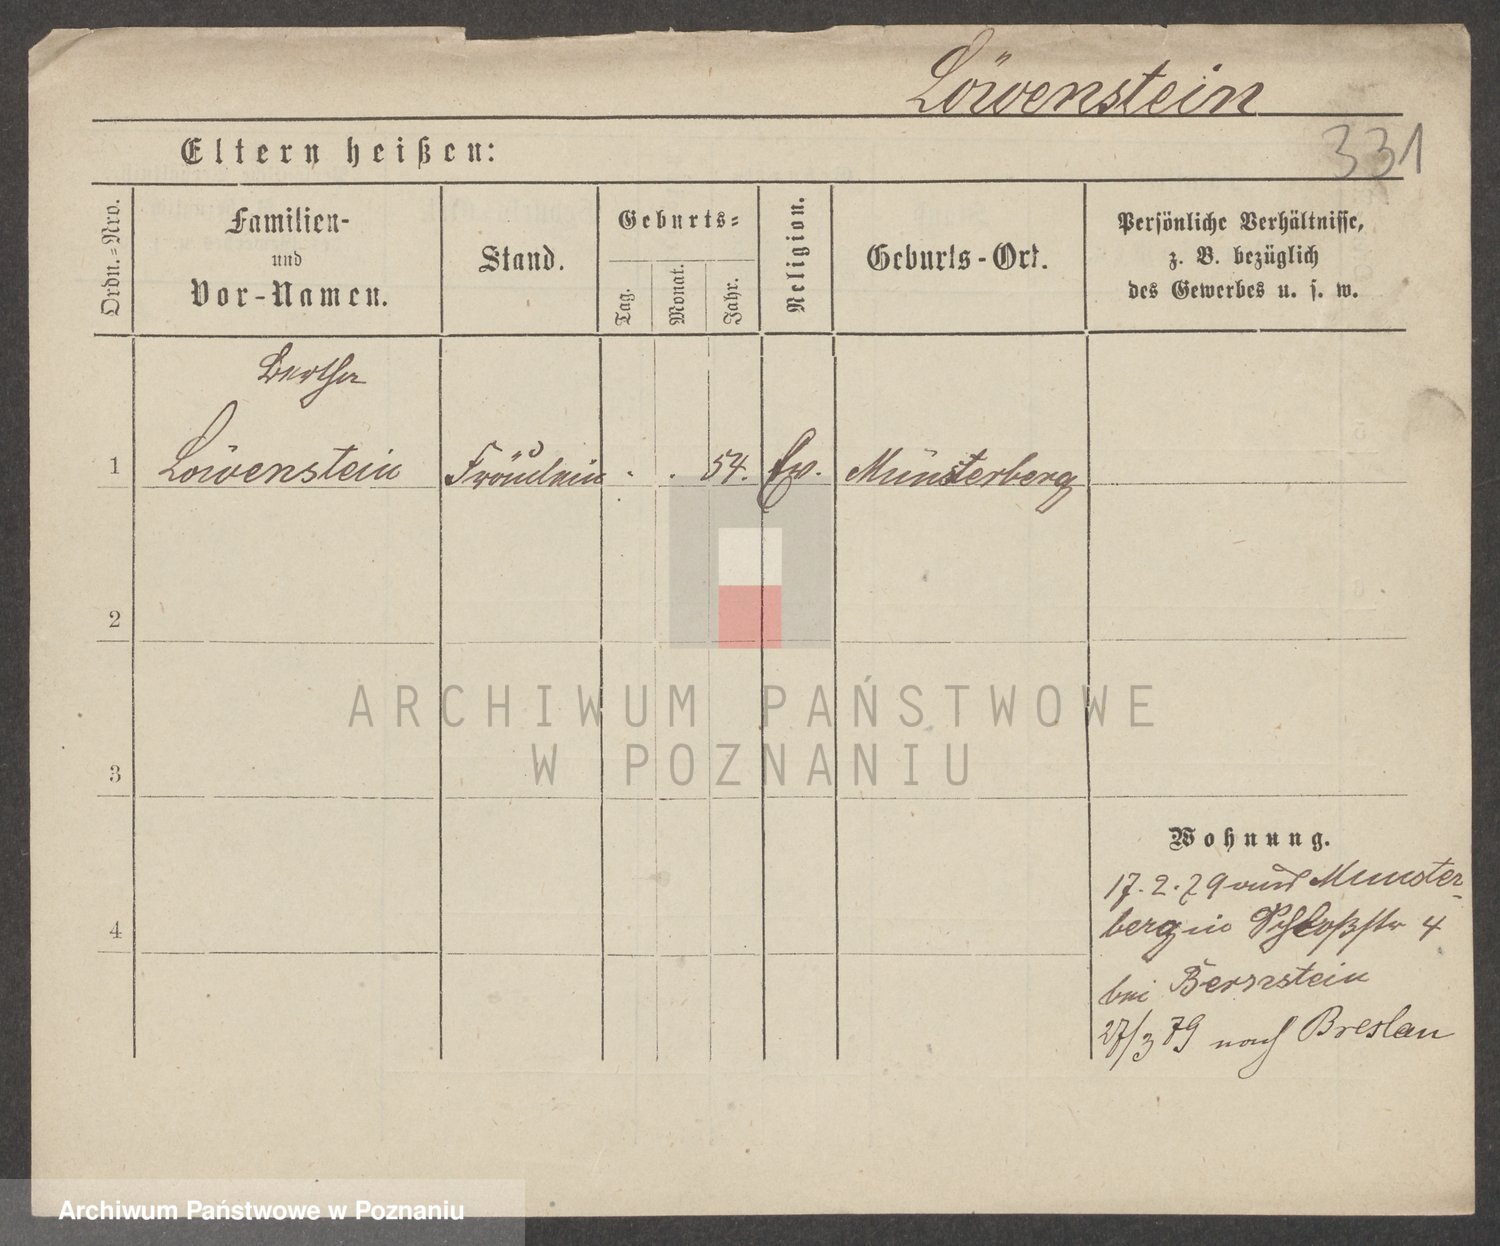 Löwenstein
331
Eltern heißen:
Ordn.=Nro.
Familien-
und
Vor-Namen.
Stand.
Geburts=
Tag.
Monat.
Jahr.
Religion.
Geburts-Ort.
Persönliche Verhältnisse,
z. B. bezüglich
des Gewerbes u. s. w.
Bertha
1 Löwenstein Fräulein . . 54. Ev. Münsterberg
2
3
4
ARCHIWUM PAŃSTWOWE
W POZNANIU
Wohnung.
17.2.79 aus Munster-
berg in Schloßstr 4
bei Bernstein
27/3 79 nach Breslau
Archiwum Państwowe w Poznaniu